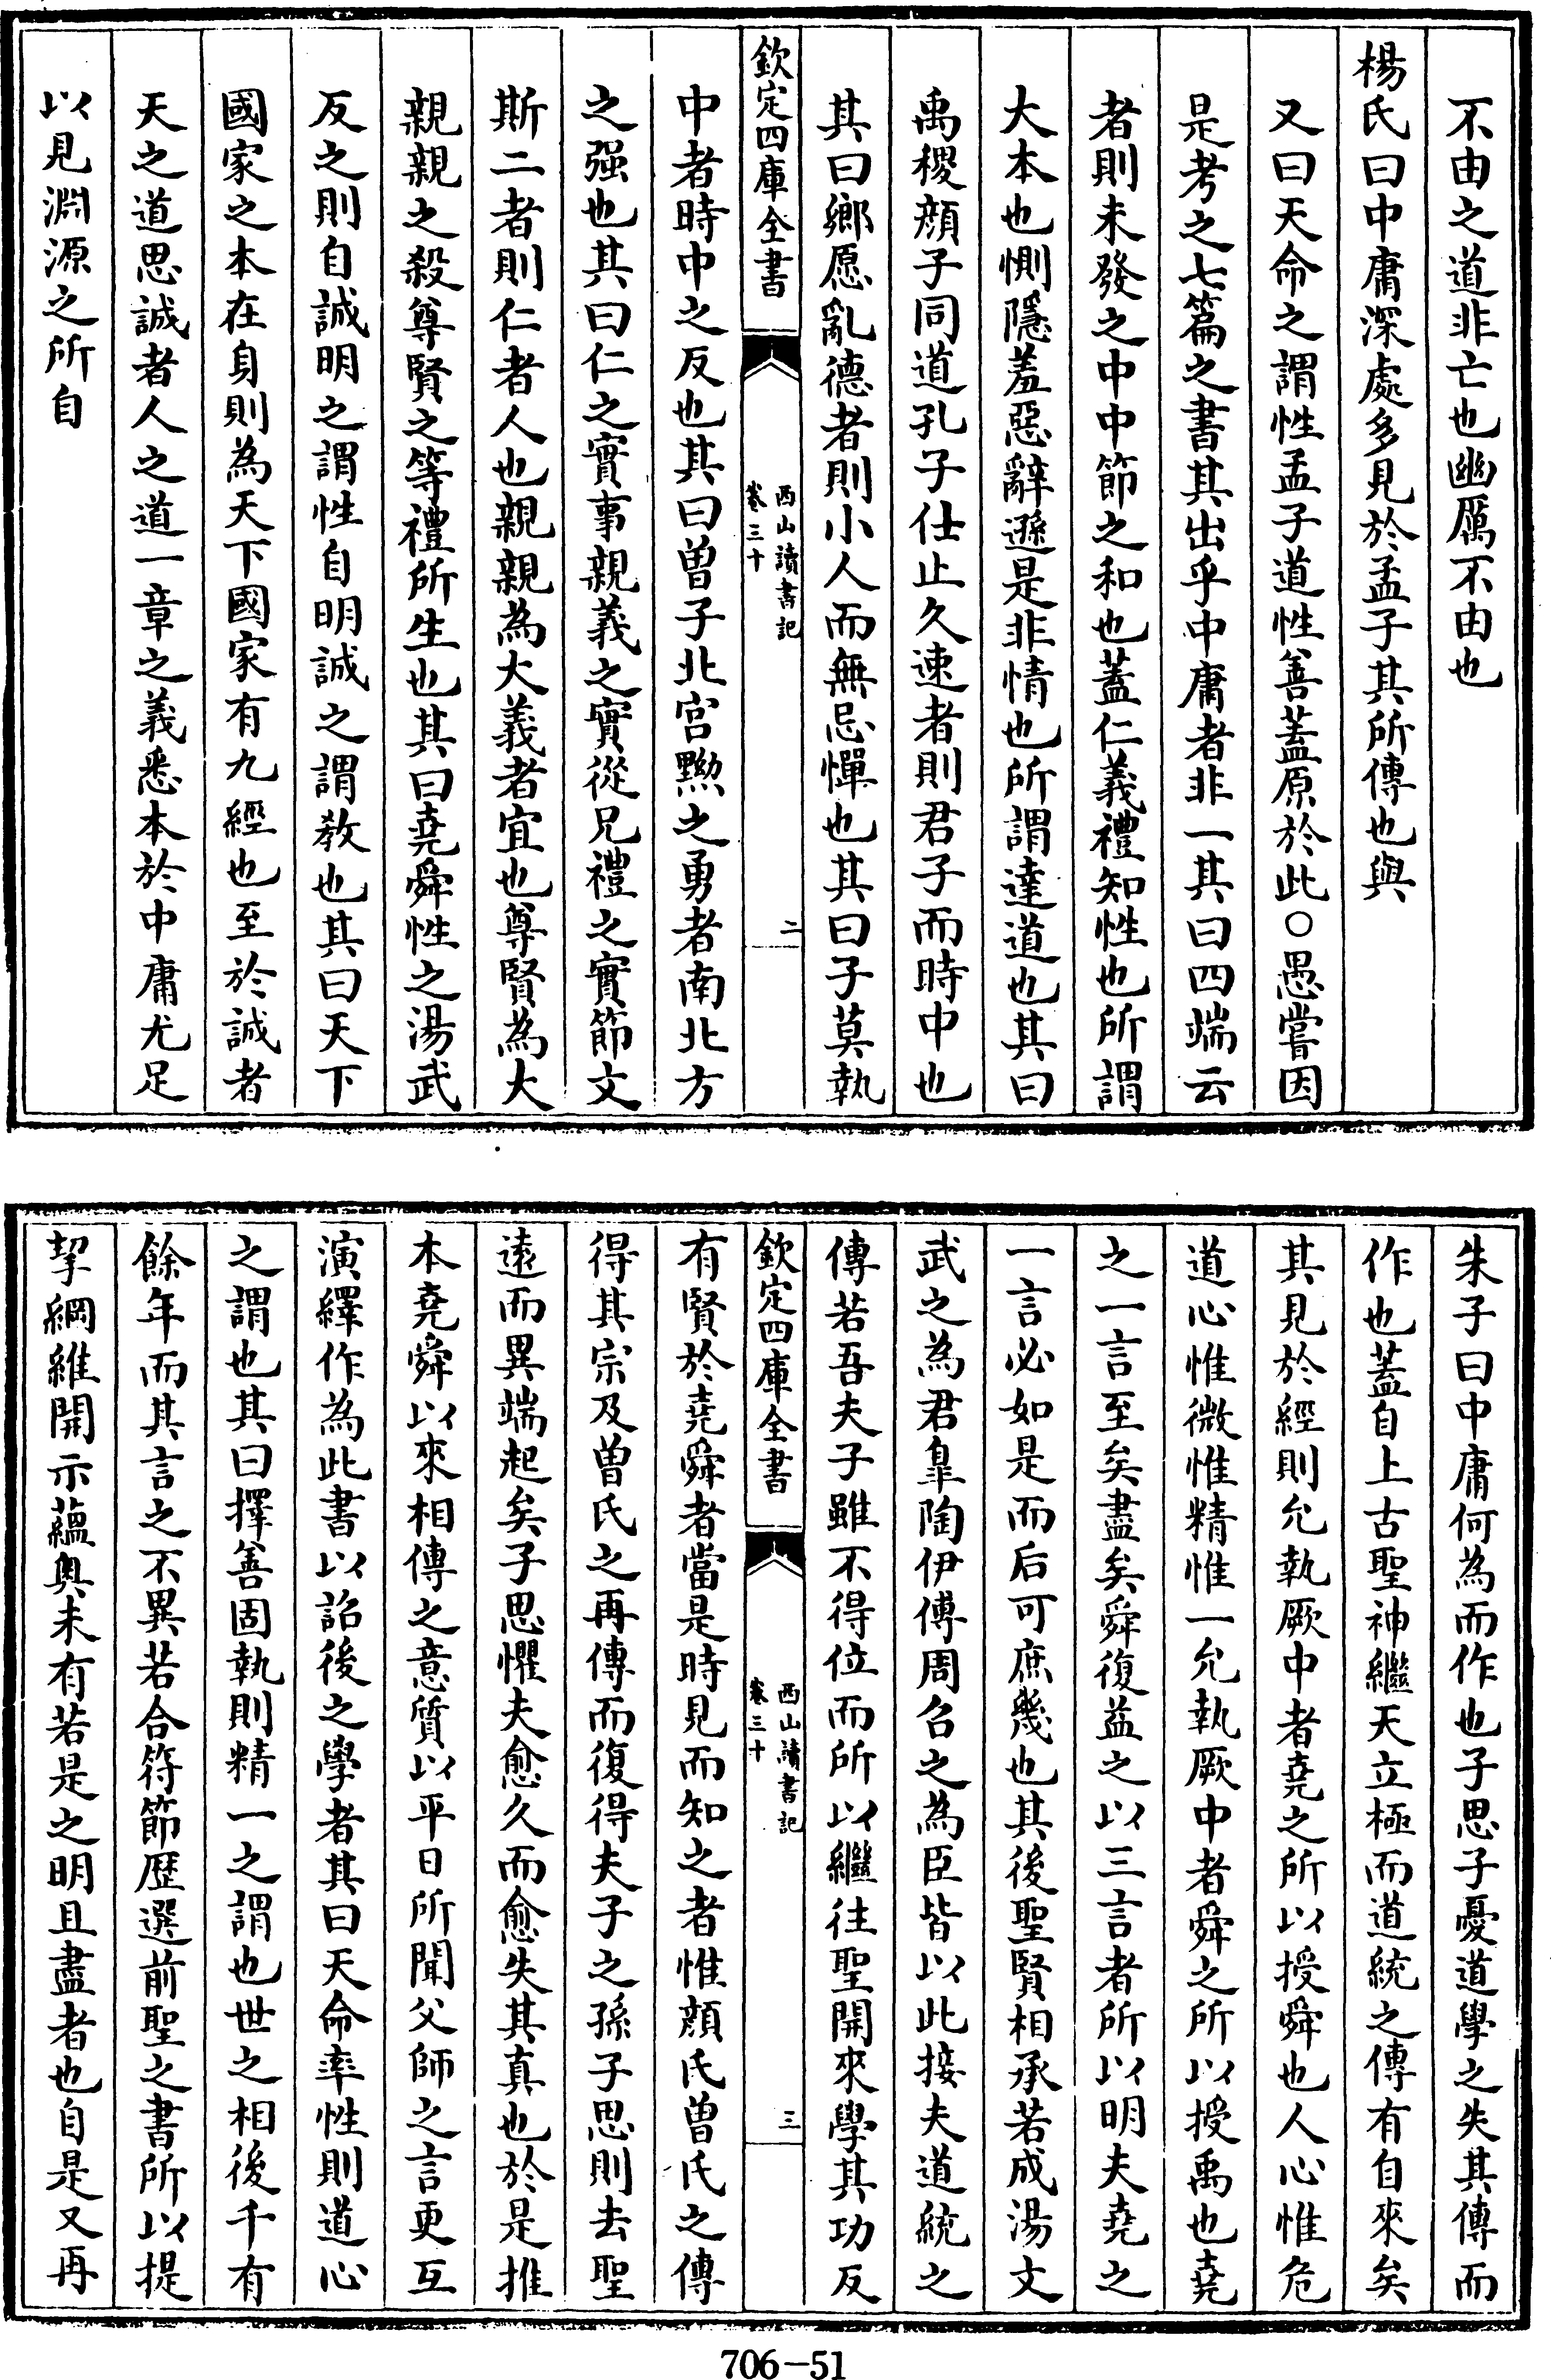 不由之道非亡也幽厲不由也
楊氏曰中庸深處多見於孟子其所傳也與
又曰天命之謂性孟子道性善蓋原於此○愚嘗因
是考之七篇之書其出乎中庸者非一其曰四端云
者則未發之中中節之和也蓋仁義禮知性也所謂
大本也惻隱羞惡辭遜是非情也所謂達道也其曰
禹稷顔子同道孔子仕止久速者則君子而時中也
其曰鄉愿亂德者則小人而無忌憚也其曰子莫執
欽定四庫全書
西山讀書記
卷三十
二
中者時中之反也其曰曽子北宮黝之勇者南北方
之强也其曰仁之實事親義之實從兄禮之實節文
斯二者則仁者人也親親為大義者宜也尊賢為大
親親之殺尊賢之等禮所生也其曰堯舜性之湯武
反之則自誠明之謂性自明誠之謂教也其曰天下
國家之本在身則為天下國家有九經也至於誠者
天之道思誠者人之道一章之義悉本於中庸尤足
以見淵源之所自
朱子曰中庸何為而作也子思子憂道學之失其傳而
作也蓋自上古聖神繼天立極而道統之傳有自來矣
其見於經則允執厥中者堯之所以授舜也人心惟危
道心惟微惟精惟一允執厥中者舜之所以授禹也堯
之一言至矣盡矣舜復益之以三言者所以明夫堯之
一言必如是而后可庶幾也其後聖賢相承若成湯文
武之為君臯陶伊傅周召之為臣皆以此接夫道統之
傳若吾夫子雖不得位而所以繼往聖開來學其功反
欽定四庫全書
西山讀書記
卷三十
三
有賢於堯舜者當是時見而知之者惟顔氏曽氏之傳
得其宗及曽氏之再傳而復得夫子之孫子思則去聖
逺而異端起矣子思懼夫愈久而愈失其真也於是推
本堯舜以來相傳之意質以平日所聞父師之言更互
演繹作為此書以詔後之學者其曰天命率性則道心
之謂也其曰擇善固執則精一之謂也世之相後千有
餘年而其言之不異若合符節歴選前聖之書所以提
挈綱維開示蘊奥未有若是之明且盡者也自是又再
706-51